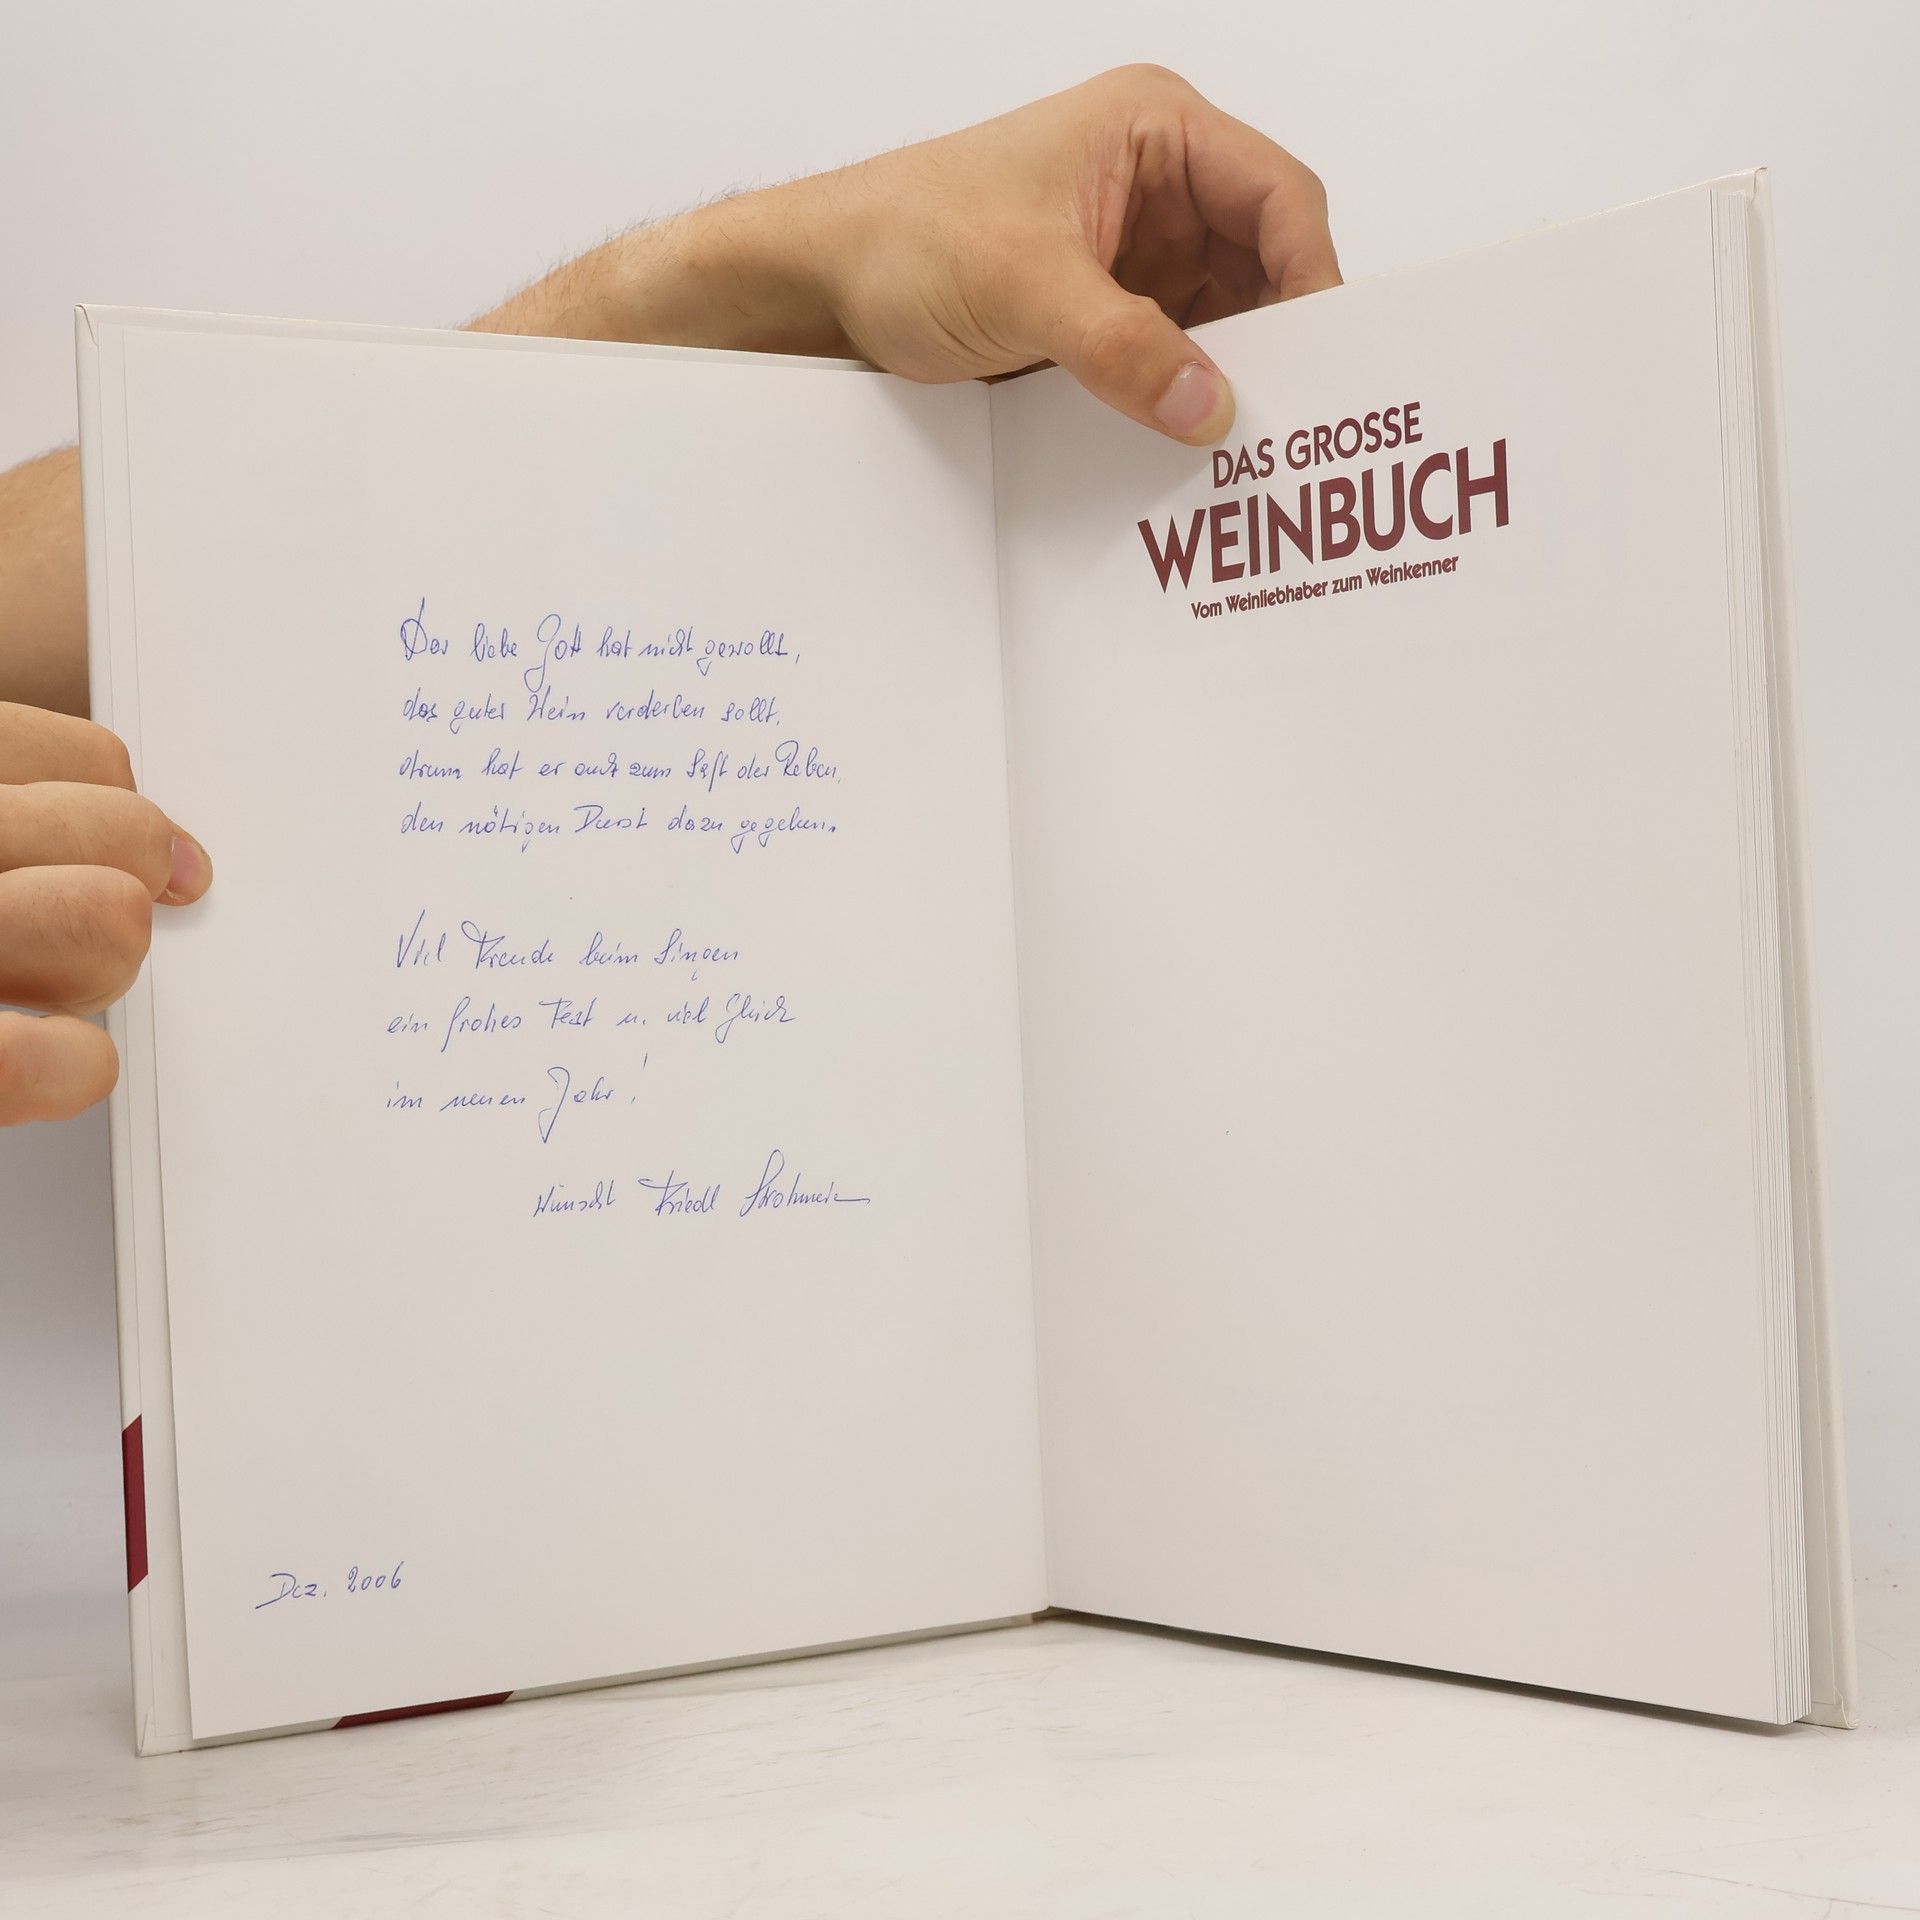 Der liebe Gott hat nicht gewollt,
das guter Wein verderben sollt.
drum hat er auch zum Saft der Reben,
den nötigen Durst dazu gegeben.
Viel Freude beim Singen
ein frohes Fest u. viel Glück
im neuen Jahr!
wünscht Friedl Strohmeier
Dez. 2006
DAS GROSSE
WEINBUCH
Vom Weinliebhaber zum Weinkenner